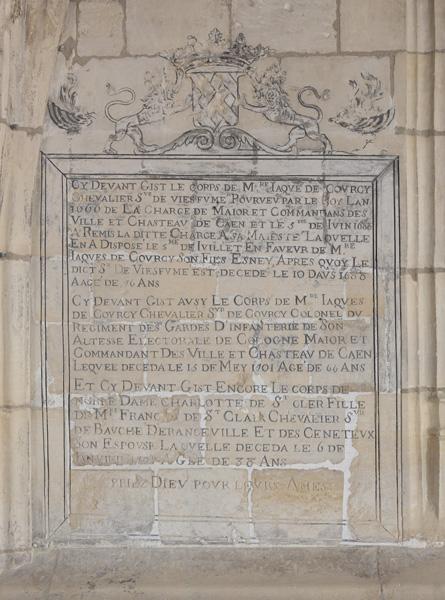 CY DEVANT GIST LE CORPS DE M.RE IAQVE DE COVRCY
CHEVALIER S.VR DE VIESFVME POVRVEV PAR LE ROY LAN
1666 DE LA CHARGE DE MAIOR ET COMMENDANS DES
VILLE ET CHASTEAV DE CAEN ET LE 5.ME DE IVIN 1686
A REMIS LA DITTE CHARGE A SA MAIESTÉ LAQVELLE
EN A DISPOSE LE 5.ME DE IVILLET EN FAVEVR DE M.RE
IAQVES DE COVRCY SON FILS ESNEY, APRES QVOY LE
DICT S.R DE VIESFVME EST DECEDE LE 10 DAVS 1688
AAGE DE 76 ANS
CY DEVANT GIST AVSY LE CORPS DE M.RE IAQVES
DE COVRCY CHEVALIER S.VR DE COVRCY COLONEL DV
REGIMENT DES GARDES D'INFANTERIE DE SON
ALTESSE ELECTORALE DE COLOGNE MAIOR ET
COMMANDANT DES VILLE ET CHASTEAV DE CAEN
LEQVEL DECEDA LE 15 DE MEY 1701 AGE DE 66 ANS
ET CY DEVANT GIST ENCORE LE CORPS DE
NOBLE DAME CHARLOTTE DE S.T CLER FILLE
DE M.RE FRANCOIS DE S.T CLAIR CHEVALIER S.VR
DE BAVCHE DERANGEVILLE ET DES CENETEVX
SON ESPOVSE LAQVELLE DECEDA LE 6 DE
IANVIER AGEE DE 38 ANS
PRIEZ DIEV POVR LEVRS AMES